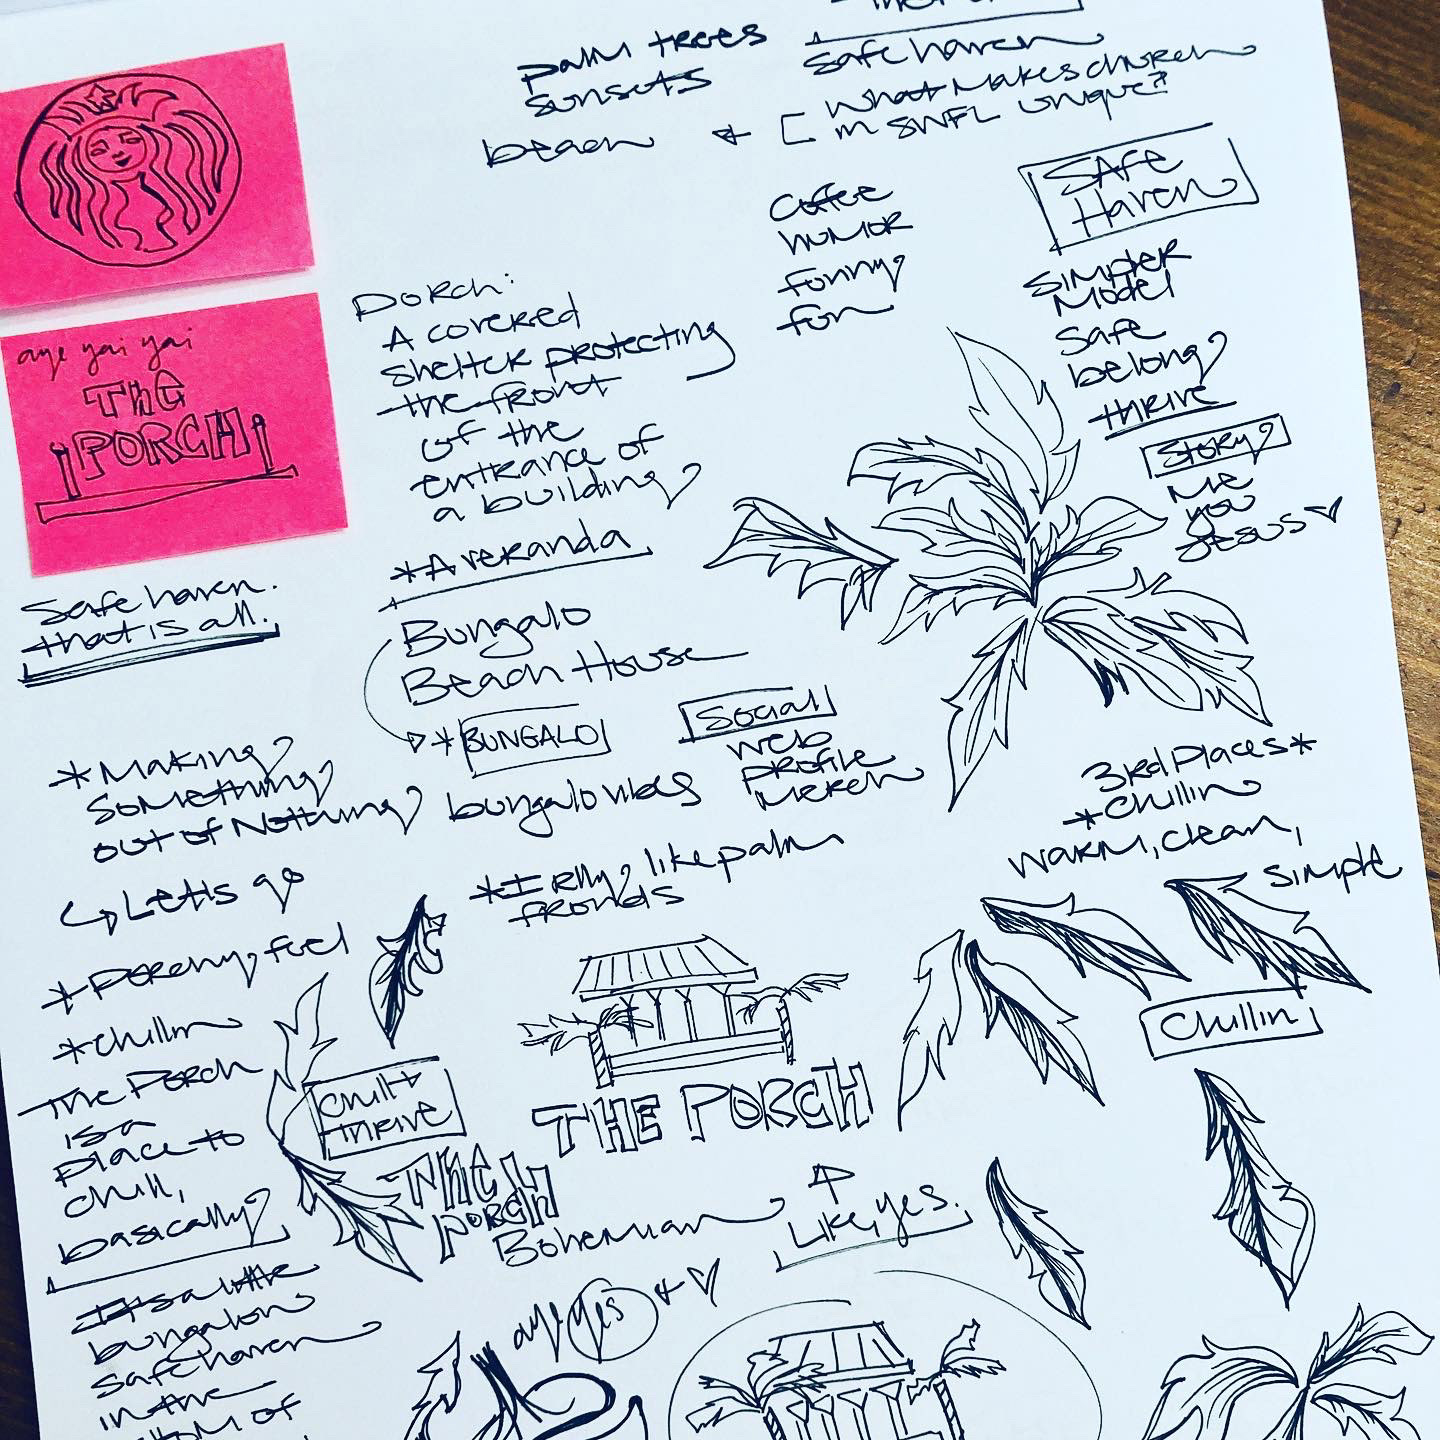 aye yai yai
THE
PORCH
Safe haven.
that is all.
palm trees
sunsets
beach
safe haven
what makes church
in SWFL unique?
coffee
humor
funny
fun
SAFE
HAVEN
simpler
model
safe
belong
thrive
story
me
you
Jesus
Porch:
A covered
shelter protecting
the front
of the
entrance of
a building
*A veranda
Bungalo
Beach House
* BUNGALO
bungalo vibes
Social
web
profile
merch
*Making
something
out of nothing
Let's go
*I rlly like palm
fronds
3rd Places*
*chillin
warm, clean,
simple
Chillin
*Porchy feel
*chillin
The Porch
is a
place to
chill,
basically
It's a little
bungalow
safe haven
in the
of
chill +
thrive
THE PORCH
The
PORCH
Bohemian
Like, yes.
aye yes +